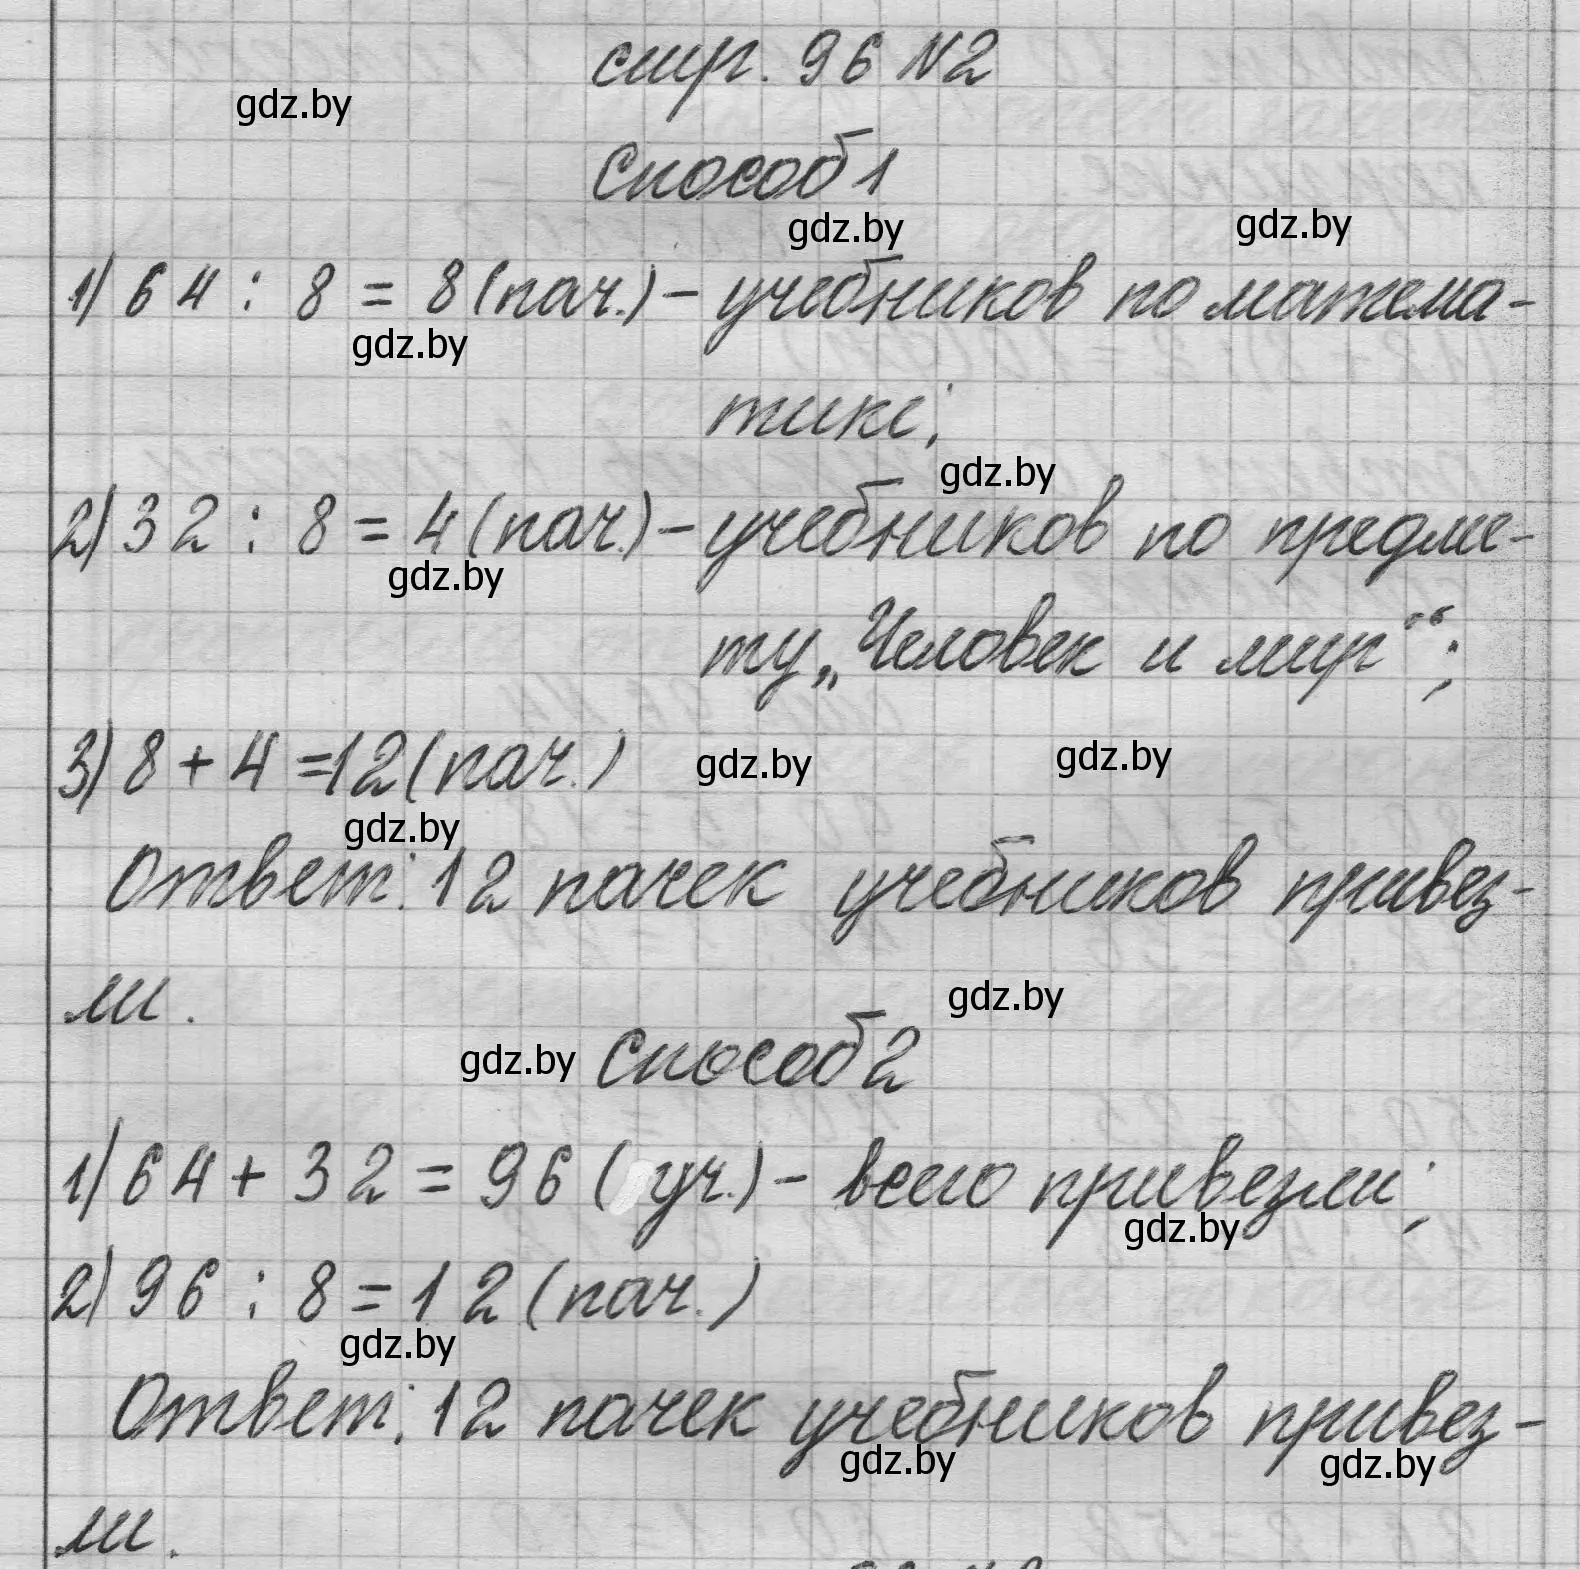 стр. 96 №2
gdz.by
Способ 1
gdz.by
gdz.by
1) 64 : 8 = 8 (пач.) – учебников по матема-
gdz.by
тике;
gdz.by
2) 32 : 8 = 4 (пач.) – учебников по предме-
gdz.by
ту „Человек и мир“;
3) 8 + 4 = 12 (пач.)
gdz.by
gdz.by
gdz.by
Ответ: 12 пачек учебников привез-
ли.
gdz.by
gdz.by
Способ 2
1) 64 + 32 = 96 (уч.) – всего привезли;
gdz.by
2) 96 : 8 = 12 (пач.)
gdz.by
Ответ: 12 пачек учебников привез-
gdz.by
gdz.by
ли.